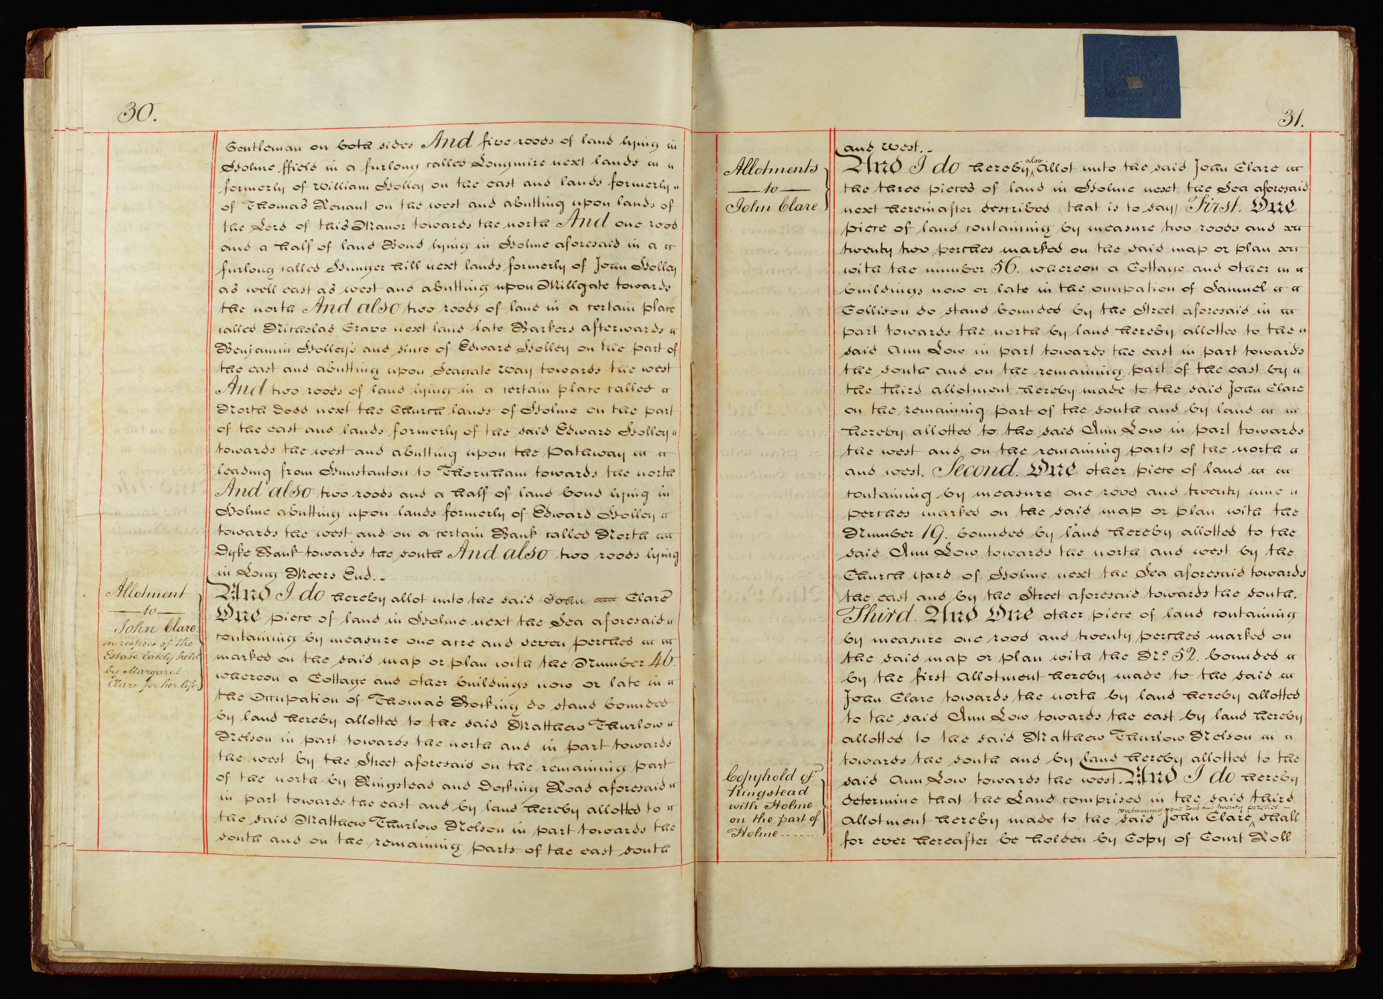 30.
Gentleman on both sides And five roods of land lying in
Holme ffield in a furlong called Longmire next lands
formerly of William Holley on the east and lands formerly
of Thomas Renaut on the west and abutting upon lands of
the Lord of this Manor towards the north And one rood
and a half of land Bond lying in Holme aforesaid in a
furlong called Hunger hill next lands formerly of John Holley
as well east as west and abutting upon Millgate towards
the north And also two roods of land in a certain place
called Nicholas Grave next land late Barkers afterwards
Benjamin Holley's and since of Edward Holley on the part of
the east and abutting upon Seagate way towards the west
And two roods of land lying in a certain place called
North Dodd next the Church lands of Holme on the part
of the east and lands formerly of the said Edward Holley
towards the west and abutting upon the Pathway
leading from Hunstanton to Thornham towards the north
And also two roods and a half of land bond lying in
Holme abutting upon lands formerly of Edward Holley
towards the west and on a certain Bank called North
Dyke Bank towards the south And also two roods lying
in Long Meers End.
Allotment
to
John Clare
in respect of the
Estate lately held
by Margaret
Clare for her life
And I do hereby allot unto the said John Clare
One piece of land in Holme next the Sea aforesaid
containing by measure one acre and seven perches
marked on the said map or plan with the Number 46.
whereon a Cottage and other buildings now or late in
the Occupation of Thomas Hocking do stand bounded
by land hereby allotted to the said Matthew Thurlow
Nelson in part towards the north and in part towards
the west by the Street aforesaid on the remaining part
of the north by Ringstead and Docking Road aforesaid
in part towards the east and by land hereby allotted to
the said Matthew Thurlow Nelson in part towards the
south and on the remaining parts of the east south
31.
and west.
Allotments
to
John Clare
And I do hereby also Allot unto the said John Clare
the three pieces of land in Holme next the Sea aforesaid
next hereinafter described (that is to say) First. One
piece of land containing by measure two roods and
twenty two perches marked on the said map or plan
with the number 56. whereon a Cottage and other
buildings now or late in the occupation of Samuel
Collison do stand bounded by the Street aforesaid in
part towards the north by land hereby allotted to the
said Ann Low in part towards the east in part towards
the south and on the remaining part of the east by
the third allotment hereby made to the said John Clare
on the remaining part of the south and by land
hereby allotted to the said Ann Low in part towards
the west and on the remaining parts of the north
and west. Second. One other piece of land
containing by measure one rood and twenty nine
perches marked on the said map or plan with the
Number 19. bounded by land hereby allotted to the
said Ann Low towards the north and west by the
Church yard of Holme next the Sea aforesaid towards
the east and by the Street aforesaid towards the south.
Third. And One other piece of land containing
by measure one rood and twenty perches marked on
the said map or plan with the No. 52. bounded
by the first Allotment hereby made to the said
John Clare towards the north by land hereby allotted
to the said Ann Low towards the east by land hereby
allotted to the said Matthew Thurlow Nelson in
towards the south and by land hereby allotted to the
said Ann Low towards the west. And I do hereby
Copyhold of
Ringstead
with Holme
on the part of
Holme
determine that the Land comprised in the said third
containing one rood and twenty perches
Allotment hereby made to the said John Clare shall
for ever hereafter be holden by Copy of Court Roll